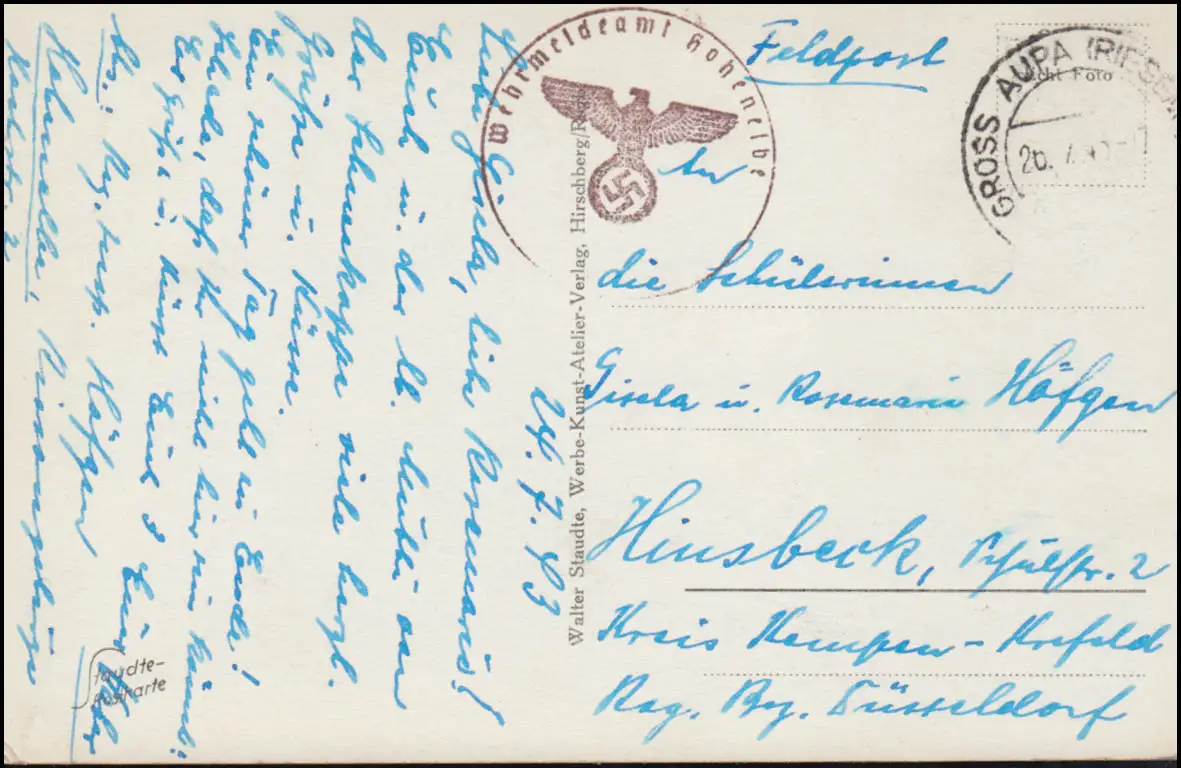 24. 7. 43
Liebe Gisela, liebe Rosemarie!
Euch u. der lb. Mutti von
der Schneekoppe viele herzl.
Grüsse u. Küsse.
Ein schöner Tag geht zu Ende!
Schade, daß Ihr nicht hier sein könnt!
Es grüßt u. küsst Euch
Euer Vater
Abs.: Rg. Insp. Höfgen
Hohenelbe, Riesengebirge
Feldpost
An
die Schülerinnen
Gisela u. Rosemarie Höfgen
Hinsbeck, Schulstr. 2
Kreis Kempen-Krefeld
Reg. Bez. Düsseldorf
Wehrmeldeamt Hohenelbe
GROSS AUPA (RIESENG
Echt Foto
Walter Staudte, Werbe-Kunst-Atelier-Verlag, Hirschberg/Rsgb.
Staudte-
Postkarte